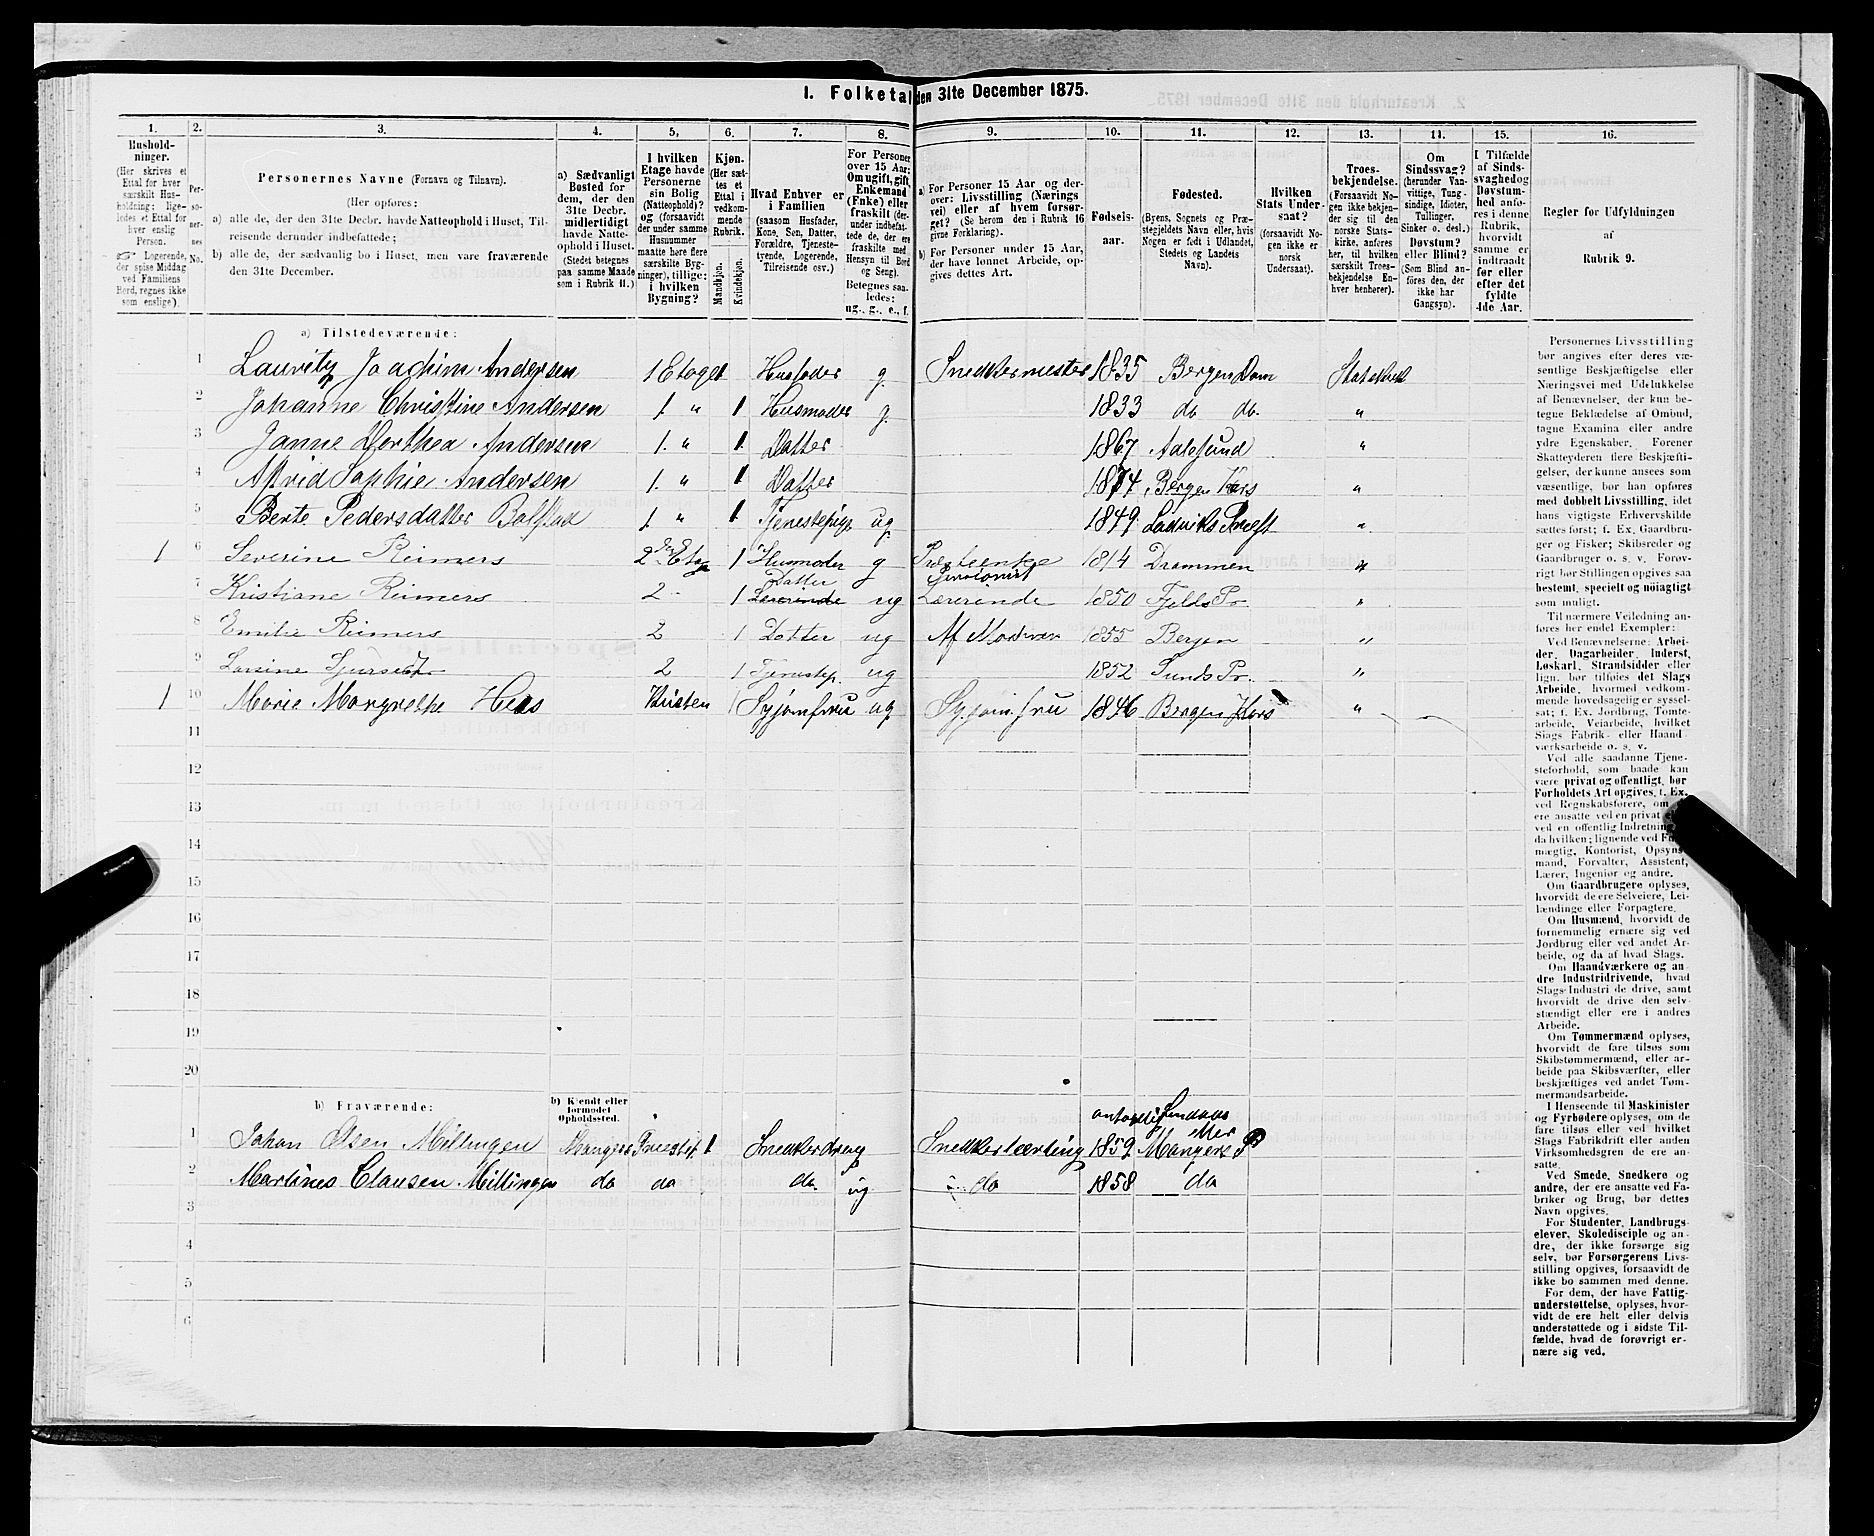 1. Folketal den 31te December 1875.
1. 2. 3. 4. 5. 6. 7. 8. 9. 10. 11. 12. 13. 14. 15. 16.
Husholdninger. (Her skrives et Ettal for hver særskilt Husholdning; ligeledes et Ettal for hver enslig Person. Logerende, der spise Middag ved Familiens Bord, regnes ikke som enslige).
Personernes No.
Personernes Navne (Fornavn og Tilnavn).
(Her opføres:
a) alle de, der den 31te Decbr. havde Natteophold i Huset, Tilreisende derunder indbefattede;
b) alle de, der sædvanlig bo i Huset, men vare fraværende den 31te December.
a) Sædvanligt Bosted for dem, der den 31te Decbr. midlertidigt havde Natteophold i Huset. (Stedet betegnes paa samme Maade som i Rubrik 11.)
I hvilken Etage havde Personerne sin Bolig (Natteophold)? og (forsaavidt der under samme Husnummer maatte høre flere særskilte Bygninger), tillige: i hvilken Bygning?
Kjøn. (Her sættes et Ettal i vedkommende Rubrik.
Mandkjøn. Kvindekjøn.
Hvad Enhver er i Familien (saasom Husfader, Kone, Søn, Datter, Forældre, Tjenestetyende, Logerende, Tilreisende osv.)
For Personer over 15 Aar: Om ugift, gift, Enkemand (Enke) eller fraskilt (derunder indbefattede de, der ere fraskilte med Hensyn til Bord og Seng). Betegnes saaledes: ug., g., e., f.
a) For Personer 15 Aar og derover: Livsstilling (Næringsvei) eller af hvem forsørget? (Se herom den i Rubrik 16 givne Forklaring).
b) For Personer under 15 Aar, der have lønnet Arbeide, opgives dettes Art.
Fødselsaar.
Fødested. (Byens, Sognets og Præstegjeldets Navn eller, hvis Nogen er født i Udlandet, Stedets og Landets Navn).
Hvilken Stats Undersaat? (forsaavidt Nogen ikke er norsk Undersaat).
Troesbekjendelse. (Forsaavidt Nogen ikke bekjender sig til den norske Statskirke, anføres her, til hvilken særskilt Troesbekjendelse Enhver henhører).
Om Sindssvag? (herunder Vanvittige, Tungsindige, Idioter, Tullinger, Sinker o. desl.) Døvstum? eller Blind? (Som Blind anføres den, der ikke har Gangsyn).
I Tilfælde af Sindssvaghed og Døvstumhed anføres i denne Rubrik, hvorvidt samme er indtraadt før eller efter det fyldte 4de Aar.
Regler for Udfyldningen af Rubrik 9.
a) Tilstedeværende:
1 Lauritz Joachim Andersen 1 Etage 1 Husfader g. Snedkermester 1835 Bergen Dom Statskirk
2 Johanne Christine Andersen 1. " 1 Husmoder g. 1833 do do. "
3 Janne Dorthea Andersen 1. " 1 Datter 1867 Aalesund "
4 Astrid Sophie Andersen 1. " 1 Datter 1874 Bergen Kors "
5 Berte Pedersdatter Bolstad 1. " 1 Tjenestepige ug. 1849 Ladviks Præst "
1 6 Severine Reimers 2den Etage 1 Husmoder g Præsteenke Pensionist 1814 Drammen "
7 Kristiane Reimers 2 - 1 Datter Lærerinde ug Lærerinde 1850 Fjelds Pr. "
8 Emilie Reimers 2 1 Datter ug Af Moderen 1855 Bergen "
9 Larsine 2 1 Tjenestep. ug 1852 Sunds Pr. "
1 10 Marie Margrethe Hess Kvisten 1 Syjomfru ug Syjomfru 1846 Bergen Kors "
11
12
13
14
15
16
17
18
19
20
b) Fraværende:
b) Kjendt eller formodet Opholdssted.
antagelig Lindaas
1 Johan Olsen Millingen Mangers Præstej. 1 Snedkerdreng Snedkerlærling 1859 Mangers P
2 Martines Clausen Millingen do do do. ug do 1858 do
3
4
5
6
Personernes Livsstilling
bør angives efter deres væ-
sentlige Beskjæftigelse eller
Næringsvei med Udelukkelse
af Benævnelser, der kun be-
tegne Beklædelse af Ombud,
tagne Examina eller andre
ydre Egenskaber. Forener
Skatteyderen flere Beskjæfti-
gelser, der kunne ansees som
væsentlige, bør han opføres
med dobbelt Livsstilling, idet
hans vigtigste Erhvervskilde
sættes først; f. Ex. Gaardbru-
ger og Fisker; Skibsreder og
Gaardbruger o. s. v. Forøv-
rigt bør Stillingen opgives saa
bestemt, specielt og nøiagtigt
som muligt.
Til nærmere Veiledning an-
føres her endel Exempler:
Ved Benævnelserne: Arbei-
der, Dagarbeider, Inderst,
Løskarl, Strandsidder eller
lign. bør tilføies det Slags
Arbeide, hvormed vedkom-
mende hovedsagelig er syssel-
sat; f. Ex. Jordbrug, Tomte-
arbeide, Veiarbeide, hvilket
Slags Fabrik- eller Haand-
værksarbeide o. s. v.
Ved alle saadanne Tjene-
steforhold, som baade kan
være privat og offentligt, bør
Forholdets Art opgives, f. Ex.
ved Regnskabsførere, om
ere ansatte ved en privat
ved en offentlig Indretning
da hvilken; lignende ved
mægtig, Kontorist, Opsyns-
mand, Forvalter, Assistent,
Lærer, Ingeniør og andre.
Om Gaardbrugere oplyses,
hvorvidt de ere Selveiere, Lei-
lændinge eller Forpagtere.
Om Husmænd, hvorvidt de
fornemmelig ernære sig ved
Jordbrug eller ved andet Ar-
beide, og da af hvad Slags.
Om Haandværkere og an-
dre Industridrivende, hvad
Slags Industri de drive, samt
hvorvidt de drive den selv-
stændigt eller ere i andres
Arbeide.
Om Tømmermænd oplyses,
hvorvidt de fare tilsøs som
Skibstømmermænd, eller ar-
beide paa Skibsværfter, eller
beskjæftiges ved andet Tøm-
mermandsarbeide.
I Henseende til Maskinister
og Fyrbødere oplyses, om de
fare tilsøs eller ved hvilket
Slags Fabrikdrift eller anden
Virksomhedsgren de ere an-
satte.
Ved Smede, Snedkere og
andre, der ere ansatte ved Fa-
briker og Brug, bør dettes
Navn opgives.
For Studenter, Landbrugs-
elever, Skoledisciple og an-
dre, der ikke forsørge sig
selv, bør Forsørgerens Livs-
stilling opgives, forsaavidt de
ikke bo sammen med denne.
For dem, der have Fattig-
understøttelse, oplyses, hvor-
vidt de ere helt eller delvis
understøttede og i sidste Til-
fælde, hvad de forøvrigt er-
nære sig ved.